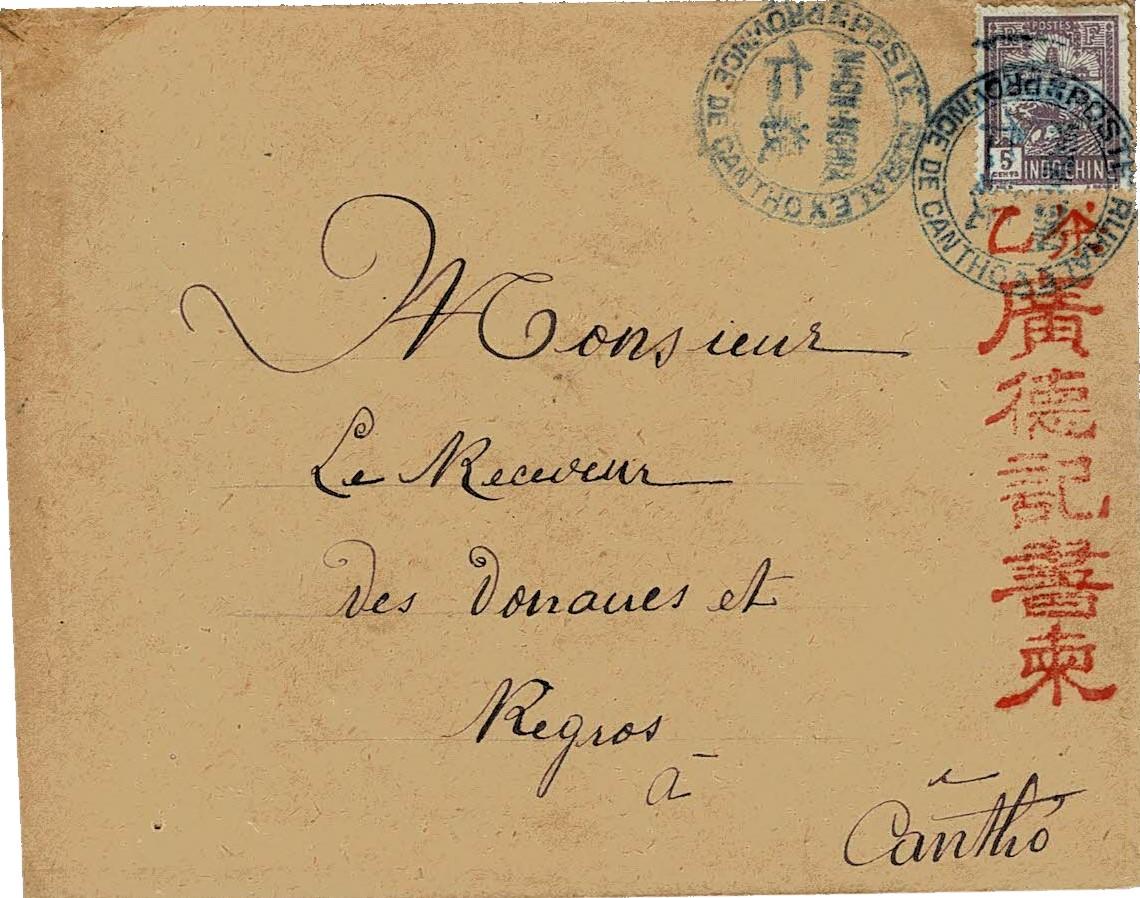 POSTE RURALE
PROVINCE DE CANTHO
NHON-NGHIA
仁義
POSTES
5
CENTS
INDOCHIN
POSTE RURALE
PROVINCE DE CANTHO
廣德記書柬
Monsieur
Le Receveur
des Douanes et
Regros
à
Cânthó